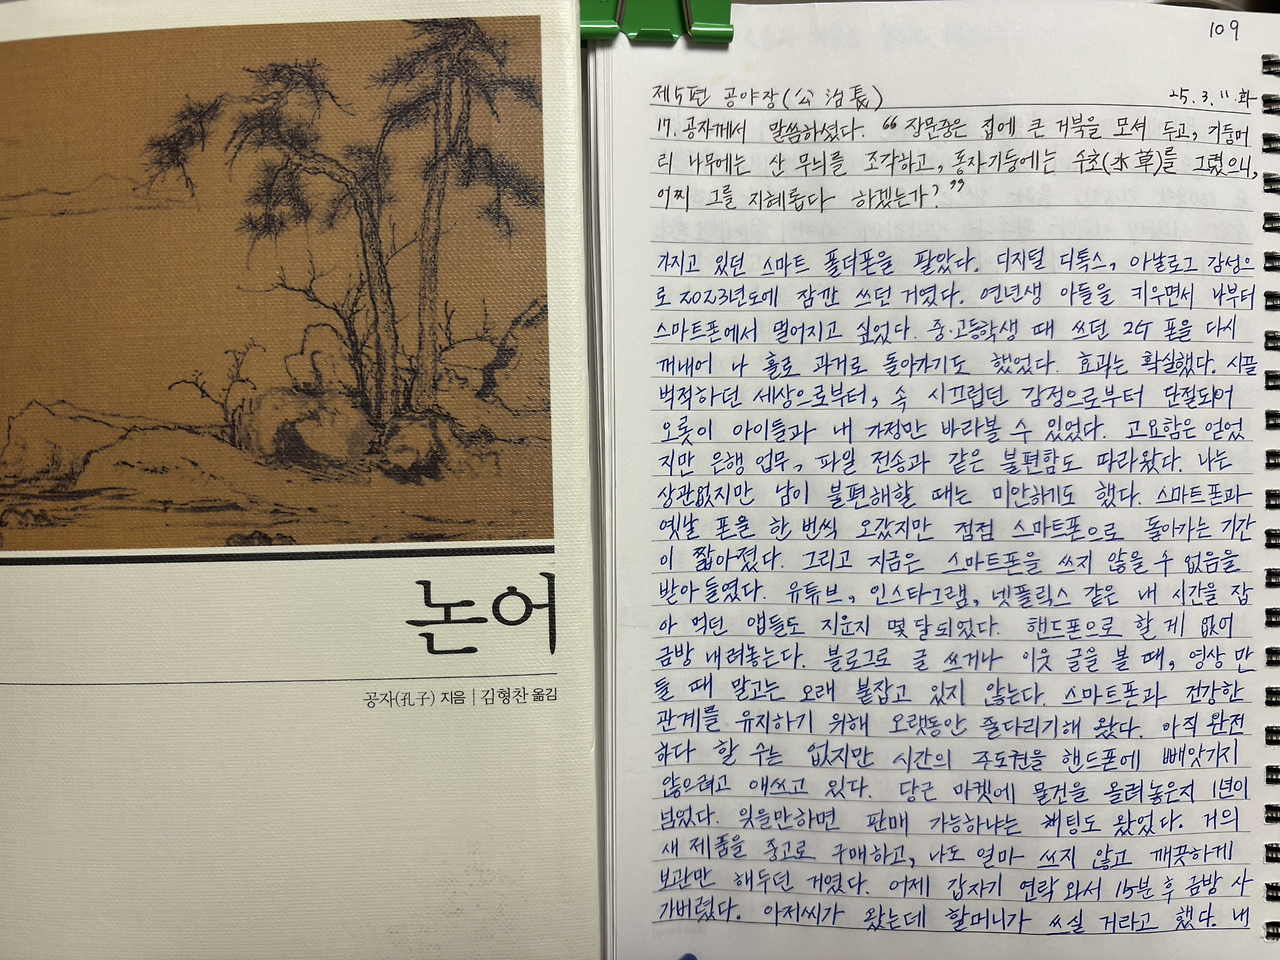 논어
공자(孔子) 지음 | 김형찬 옮김
109
제5편 공야장(公冶長) 25.3.11.화
17. 공자께서 말씀하셨다. "장문중은 집에 큰 거북을 모셔 두고, 기둥머
리 나무에는 산 무늬를 조각하고, 동자기둥에는 수초(水草)를 그렸으니,
어찌 그를 지혜롭다 하겠는가?"
가지고 있던 스마트 폴더폰을 팔았다. 디지털 디톡스, 아날로그 감성으
로 2023년도에 잠깐 쓰던 거였다. 연년생 아들을 키우면서 나부터
스마트폰에서 멀어지고 싶었다. 중·고등학생 때 쓰던 2G 폰을 다시
꺼내어 나 홀로 과거로 돌아가기도 했었다. 효과는 확실했다. 시끌
벅적하던 세상으로부터, 속 시끄럽던 감정으로부터 단절되어
오롯이 아이들과 내 가정만 바라볼 수 있었다. 고요함은 얻었
지만 은행 업무, 파일 전송과 같은 불편함도 따라왔다. 나는
상관없지만 남이 불편해할 때는 미안하기도 했다. 스마트폰과
옛날 폰을 한 번씩 오갔지만 점점 스마트폰으로 돌아가는 기간
이 짧아졌다. 그리고 지금은 스마트폰을 쓰지 않을 수 없음을
받아들였다. 유튜브, 인스타그램, 넷플릭스 같은 내 시간을 잡
아 먹던 앱들도 지운지 몇 달 되었다. 핸드폰으로 할 게 없어
금방 내려놓는다. 블로그로 글 쓰거나 이웃 글을 볼 때, 영상 만
들 때 말고는 오래 붙잡고 있지 않는다. 스마트폰과 건강한
관계를 유지하기 위해 오랫동안 줄다리기해 왔다. 아직 완전
하다 할 수는 없지만 시간의 주도권을 핸드폰에 빼앗기지
않으려고 애쓰고 있다. 당근 마켓에 물건을 올려놓은지 1년이
넘었다. 잊을만하면 판매 가능하냐는 채팅도 왔었다. 거의
새 제품을 중고로 구매하고, 나도 얼마 쓰지 않고 깨끗하게
보관만 해두던 거였다. 어제 갑자기 연락 와서 15분 후 금방 사
가버렸다. 아저씨가 왔는데 할머니가 쓰실 거라고 했다. 내